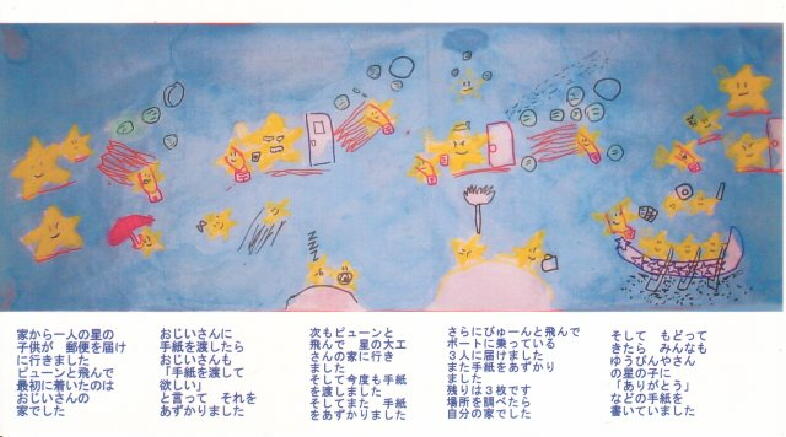 家から一人の星の
子供が 郵便を届け
に行きました
ピューンと飛んで
最初に着いたのは
おじいさんの
家でした
おじいさんに
手紙を渡したら
おじいさんも
「手紙を渡して
欲しい」
と言って それを
あずかりました
次もピューンと
飛んで 星の大工
さんの家に行き
ました
そして今度も手紙
を渡しました
そしてまた 手紙
をあずかりました
さらにびゅーんと飛んで
ボートに乗っている
3人に届けました
また手紙をあずかり
ました
残りは3枚です
場所を調べたら
自分の家でした
そして もどって
きたら みんなも
ゆうびんやさん
の星の子に
「ありがとう」
などの手紙を
書いていました